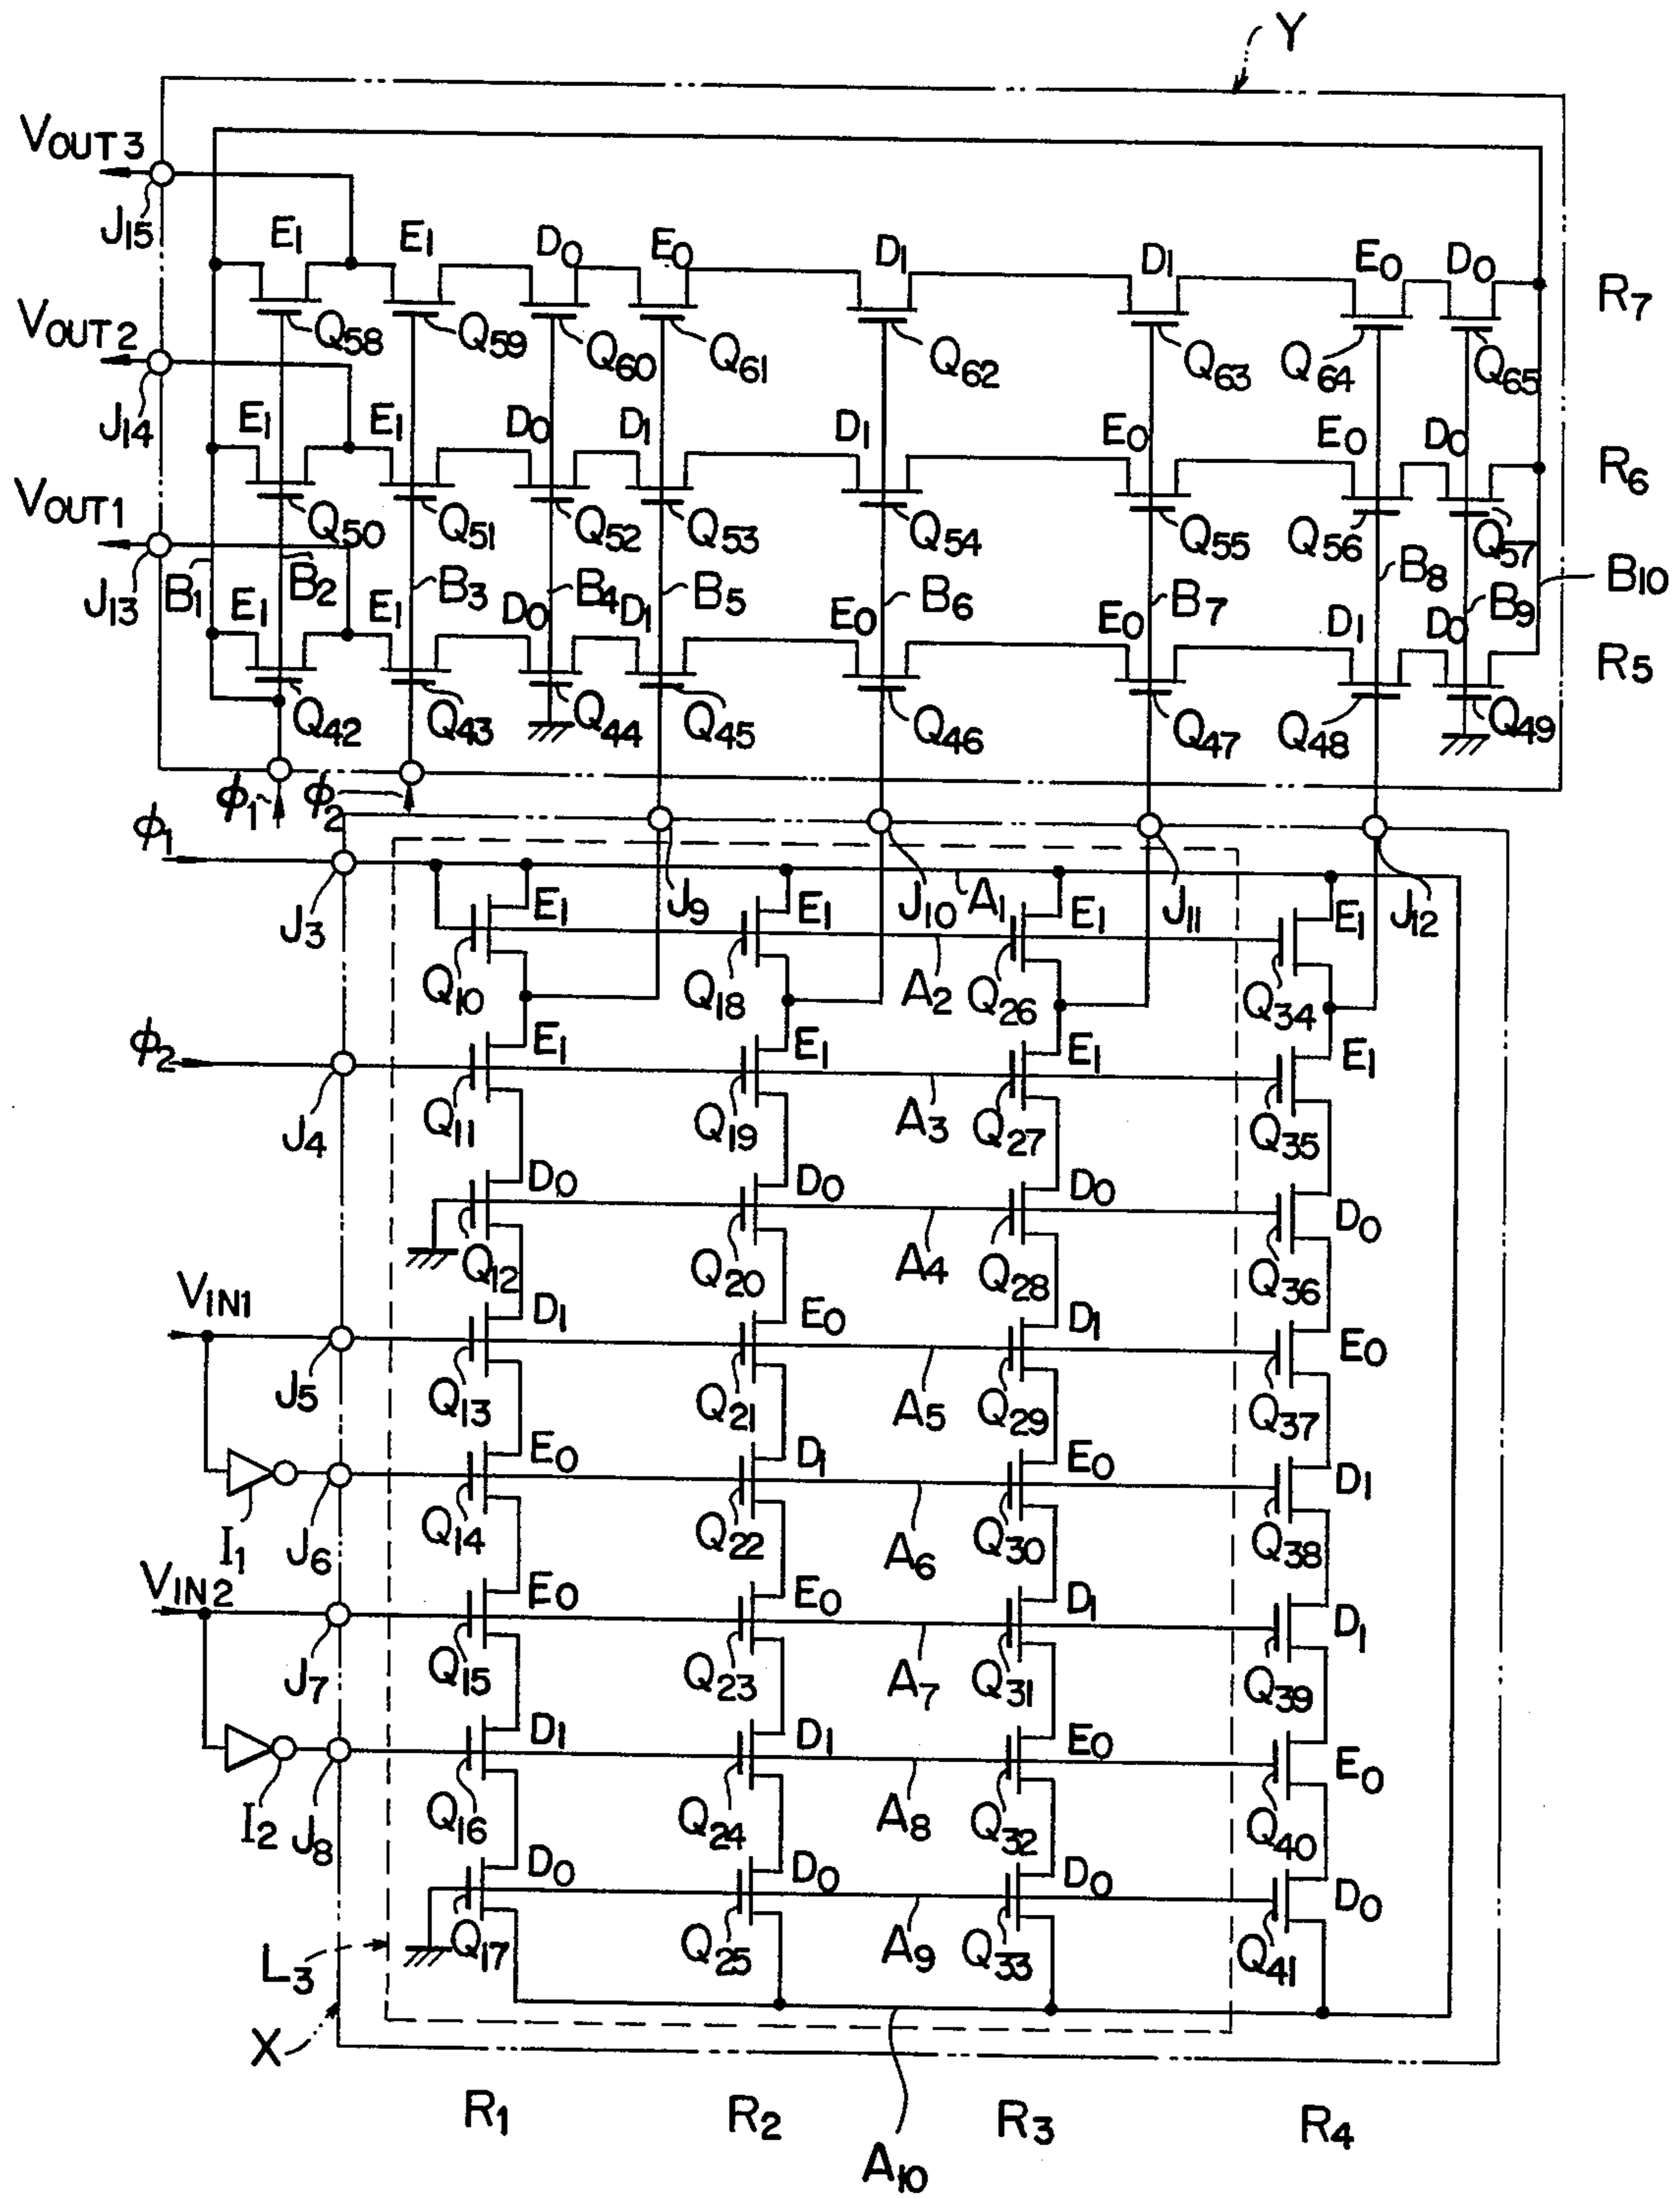 Y
VOUT3
J15
E1 E1 D0 E0 D1 D1 E0 D0 R7
Q58 Q59 Q60 Q61 Q62 Q63 Q64 Q65
VOUT2
J14
E1 E1 D0 D1 D1 E0 E0 D0 R6
Q50 Q51 Q52 Q53 Q54 Q55 Q56 Q57
VOUT1
J13
B1 B2 B3 B4 B5 B6 B7 B8 B9 B10
E1 E1 D0 D1 E0 E0 D1 D0 R5
Q42 Q43 Q44 Q45 Q46 Q47 Q48 Q49
ϕ1 ϕ2
ϕ1
J3 J9 J10 A1 J11 J12
E1 E1 E1 E1
Q10 Q18 A2 Q26 Q34
ϕ2
J4
E1 E1 E1 E1
Q11 Q19 A3 Q27 Q35
D0 D0 D0 D0
Q12 Q20 A4 Q28 Q36
VIN1
J5
D1 E0 D1 E0
Q13 Q21 A5 Q29 Q37
I1 J6
E0 D1 E0 D1
Q14 Q22 A6 Q30 Q38
VIN2
J7
E0 E0 D1 D1
Q15 Q23 A7 Q31 Q39
I2 J8
D1 D1 E0 E0
Q16 Q24 A8 Q32 Q40
D0 D0 D0 D0
Q17 Q25 A9 Q33 Q41
L3
X
R1 R2 R3 R4
A10